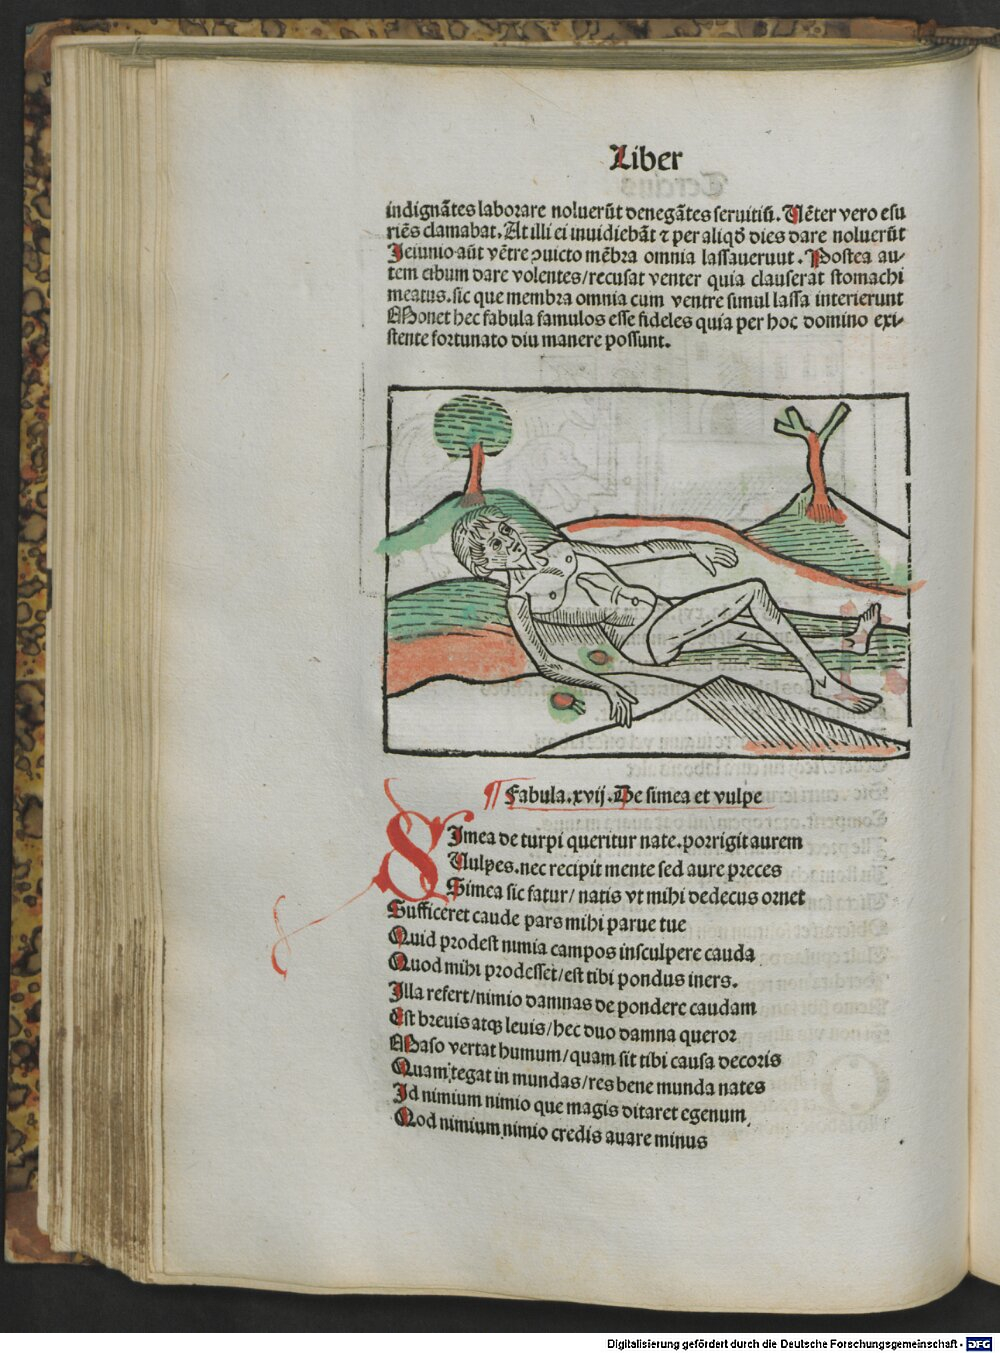 Liber
indignãtes laborare noluerũt denegãtes seruitiũ. Uẽter vero esu
riẽs clamabat. At illi ei inuidiebãt ⁊ per aliqđ dies dare noluerũt
Jeiunio aũt vẽtre ↄuicto mẽbra omnia lassaueruut. Postea au-
tem cibum dare volentes/recusat venter quia clauserat stomachi
meatus. sic que membra omnia cum ventre simul lassa interierunt
Monet hec fabula famulos esse fideles quia per hoc domino exi-
stente fortunato diu manere possunt.
¶ Fabula.xvij.De simea et vulpe
SImea de turpi queritur nate. porrigit aurem
Uulpes. nec recipit mente sed aure preces
Simea sic fatur/ natis vt mihi dedecus ornet
Sufficeret caude pars mihi parue tue
Quid prodest nimia campos insculpere cauda
Quod mihi prodesset/est tibi pondus iners.
Illa refert/nimio damnas de pondere caudam
Est breuis atqꝫ leuis/hec duo damna queror
Maso vertat humum/quam sit tibi causa decoris
Quam tegat in mundas/res bene munda nates
Id nimium nimio que magis ditaret egenum
Qod nimium nimio credis auare minus
Digitalisierung gefördert durch die Deutsche Forschungsgemeinschaft - DFG